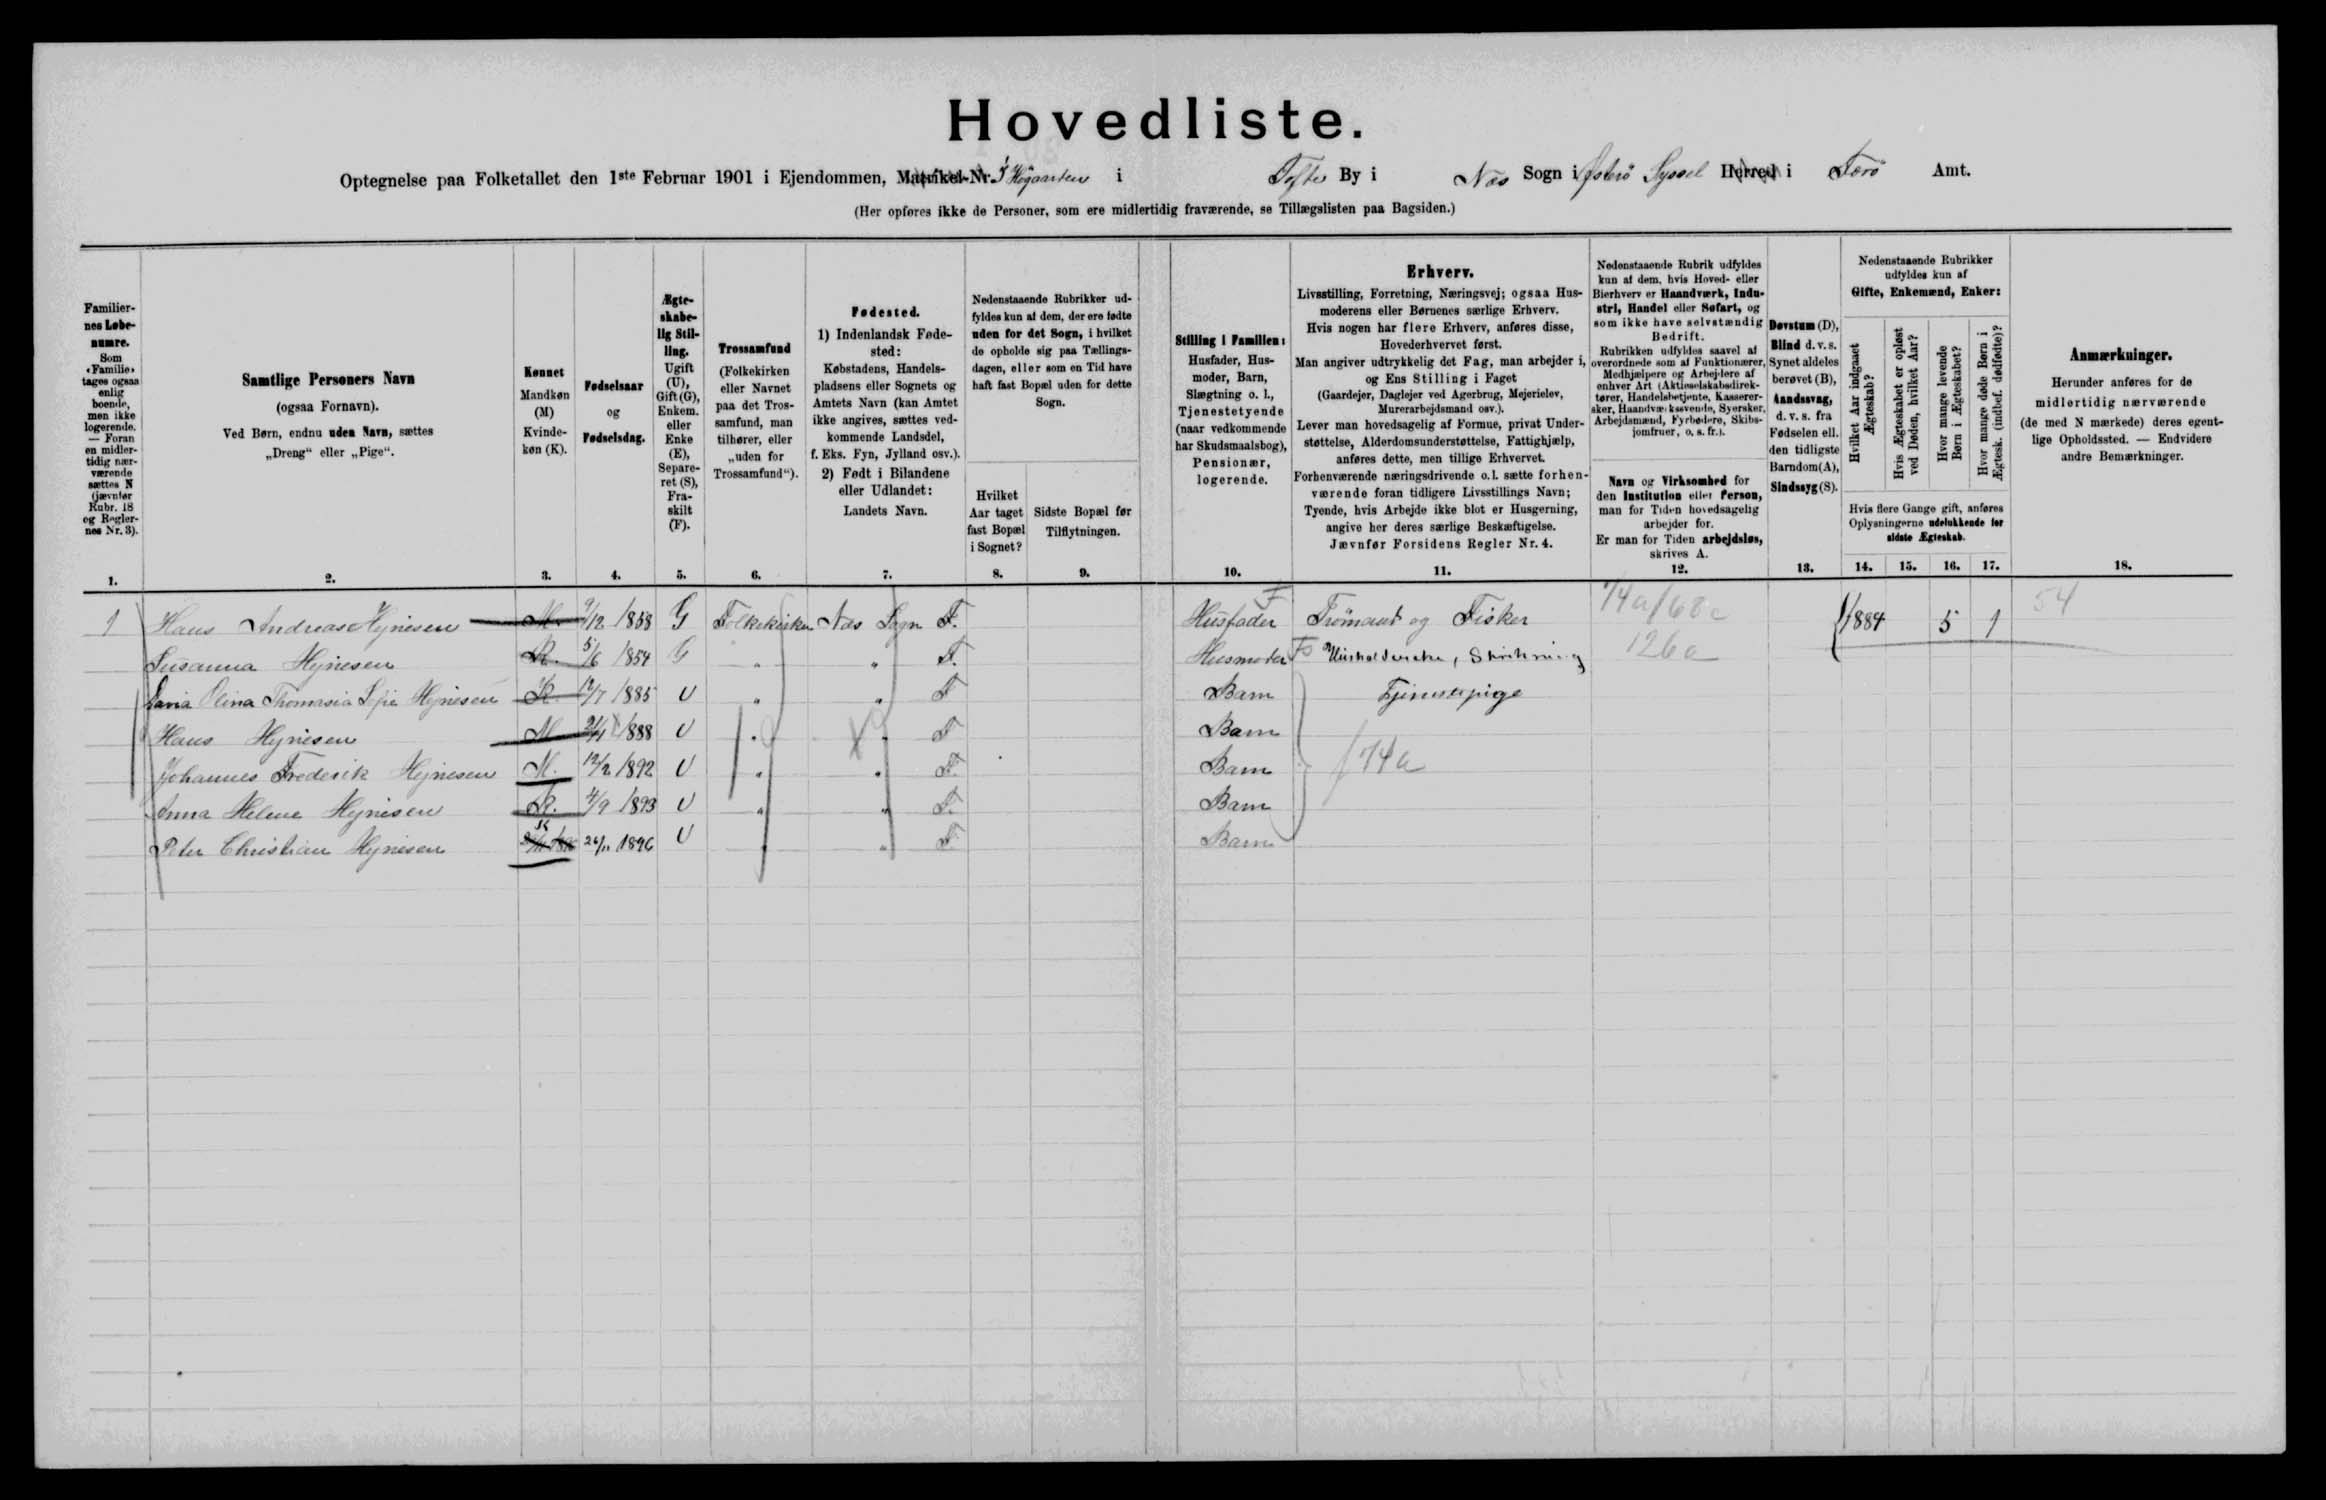 Hovedliste.
Optegnelse paa Folketallet den 1ste Februar 1901 i Ejendommen, Matrikel-Nr. i Høgaarden i Tofte By i Næs Sogn i Østerö Syssel Herred i Færö Amt.
(Her opføres ikke de Personer, som ere midlertidig fraværende, se Tillægslisten paa Bagsiden.)
Familiernes Løbenumre.
Som «Familie» tages ogsaa enlig boende, men ikke logerende. — Foran en midlertidig nærværende sættes N (jævnfør Rubr. 18 og Reglernes Nr. 3).
1.
Samtlige Personers Navn
(ogsaa Fornavn).
Ved Børn, endnu uden Navn, sættes
„Dreng“ eller „Pige“.
2.
Kønnet
Mandkøn (M)
Kvindekøn (K).
3.
Fødselsaar
og
Fødselsdag.
4.
Ægteskabelig Stilling.
Ugift (U), Gift (G), Enkem. eller Enke (E), Separeret (S), Fraskilt (F).
5.
Trossamfund
(Folkekirken eller Navnet paa det Trossamfund, man tilhører, eller „uden for Trossamfund“).
6.
Fødested.
1) Indenlandsk Fødested:
Købstadens, Handelspladsens eller Sognets og Amtets Navn (kan Amtet ikke angives, sættes vedkommende Landsdel, f. Eks. Fyn, Jylland osv.).
2) Født i Bilandene eller Udlandet:
Landets Navn.
7.
Nedenstaaende Rubrikker udfyldes kun af dem, der ere fødte uden for det Sogn, i hvilket de opholde sig paa Tællingsdagen, eller som en Tid have haft fast Bopæl uden for dette Sogn.
Hvilket Aar taget fast Bopæl i Sognet?
8.
Sidste Bopæl før Tilflytningen.
9.
Stilling i Familien:
Husfader, Husmoder, Barn, Slægtning o. l., Tjenestetyende (naar vedkommende har Skudsmaalsbog), Pensionær, logerende.
10.
Erhverv.
Livsstilling, Forretning, Næringsvej; ogsaa Husmoderens eller Børnenes særlige Erhverv.
Hvis nogen har flere Erhverv, anføres disse, Hovederhvervet først.
Man angiver udtrykkelig det Fag, man arbejder i, og Ens Stilling i Faget
(Gaardejer, Daglejer ved Agerbrug, Mejerielev, Murerarbejdsmand osv.).
Lever man hovedsagelig af Formue, privat Understøttelse, Alderdomsunderstøttelse, Fattighjælp, anføres dette, men tillige Erhvervet.
Forhenværende næringsdrivende o. l. sætte forhenværende foran tidligere Livsstillings Navn;
Tyende, hvis Arbejde ikke blot er Husgerning, angive her deres særlige Beskæftigelse.
Jævnfør Forsidens Regler Nr. 4.
11.
Nedenstaaende Rubrik udfyldes kun af dem, hvis Hoved- eller Bierhverv er Haandværk, Industri, Handel eller Søfart, og som ikke have selvstændig Bedrift.
Rubrikken udfyldes saavel af overordnede som af Funktionærer, Medhjælpere og Arbejdere af enhver Art (Aktieselskabsdirektører, Handelsbetjente, Kassererersker, Haandværkssvende, Syersker, Arbejdsmænd, Fyrbødere, Skibsjomfruer, o. s. fr.).
Navn og Virksomhed for den Institution eller Person, man for Tiden hovedsagelig arbejder for.
Er man for Tiden arbejdsløs, skrives A.
12.
Døvstum (D), Blind d. v. s. Synet aldeles berøvet (B), Aandssvag, d. v. s. fra Fødselen ell. den tidligste Barndom (A), Sindssyg (S).
13.
Nedenstaaende Rubrikker udfyldes kun af
Gifte, Enkemænd, Enker:
Hvilket Aar indgaaet Ægteskab?
Hvis Ægteskabet er opløst ved Døden, hvilket Aar?
Hvor mange levende Børn i Ægteskabet?
Hvor mange døde Børn i Ægtesk. (indbef. dødfødte)?
Hvis flere Gange gift, anføres Oplysningerne udelukkende for sidste Ægteskab.
14. 15. 16. 17.
Anmærkninger.
Herunder anføres for de midlertidig nærværende (de med N mærkede) deres egentlige Opholdssted. — Endvidere andre Bemærkninger.
18.
1 Hans Andreas Hejnesen M. 9/12 1858 G Folkekirken Næs Sogn F. Husfader F Trömand og Fisker 74a/68a 1884 5 1 54
Susanna Hejnesen K. 5/6 1854 G " " F. Husmoder Fo Husholderske, 126a
Olina Thomasia Sofie Hejnesen K. 12/7 1885 U " " F Barn Tjenestepige
Hans Hejnesen M 21/1 1888 U " " F Barn
Johannes Frederik Hejnesen M. 12/2 1892 U " " F. Barn 74a
Anna Helene Hejnesen K. 4/9 1893 U " " F. Barn
Peter Christian Hejnesen 26/11 1896 U " " F. Barn